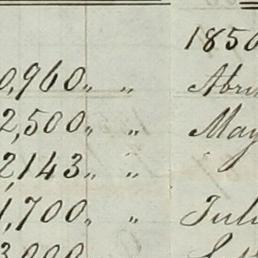 1850
0,960 " " Abri
2,500 " " May
2,143 " "
1,700 " " Juli
3,000